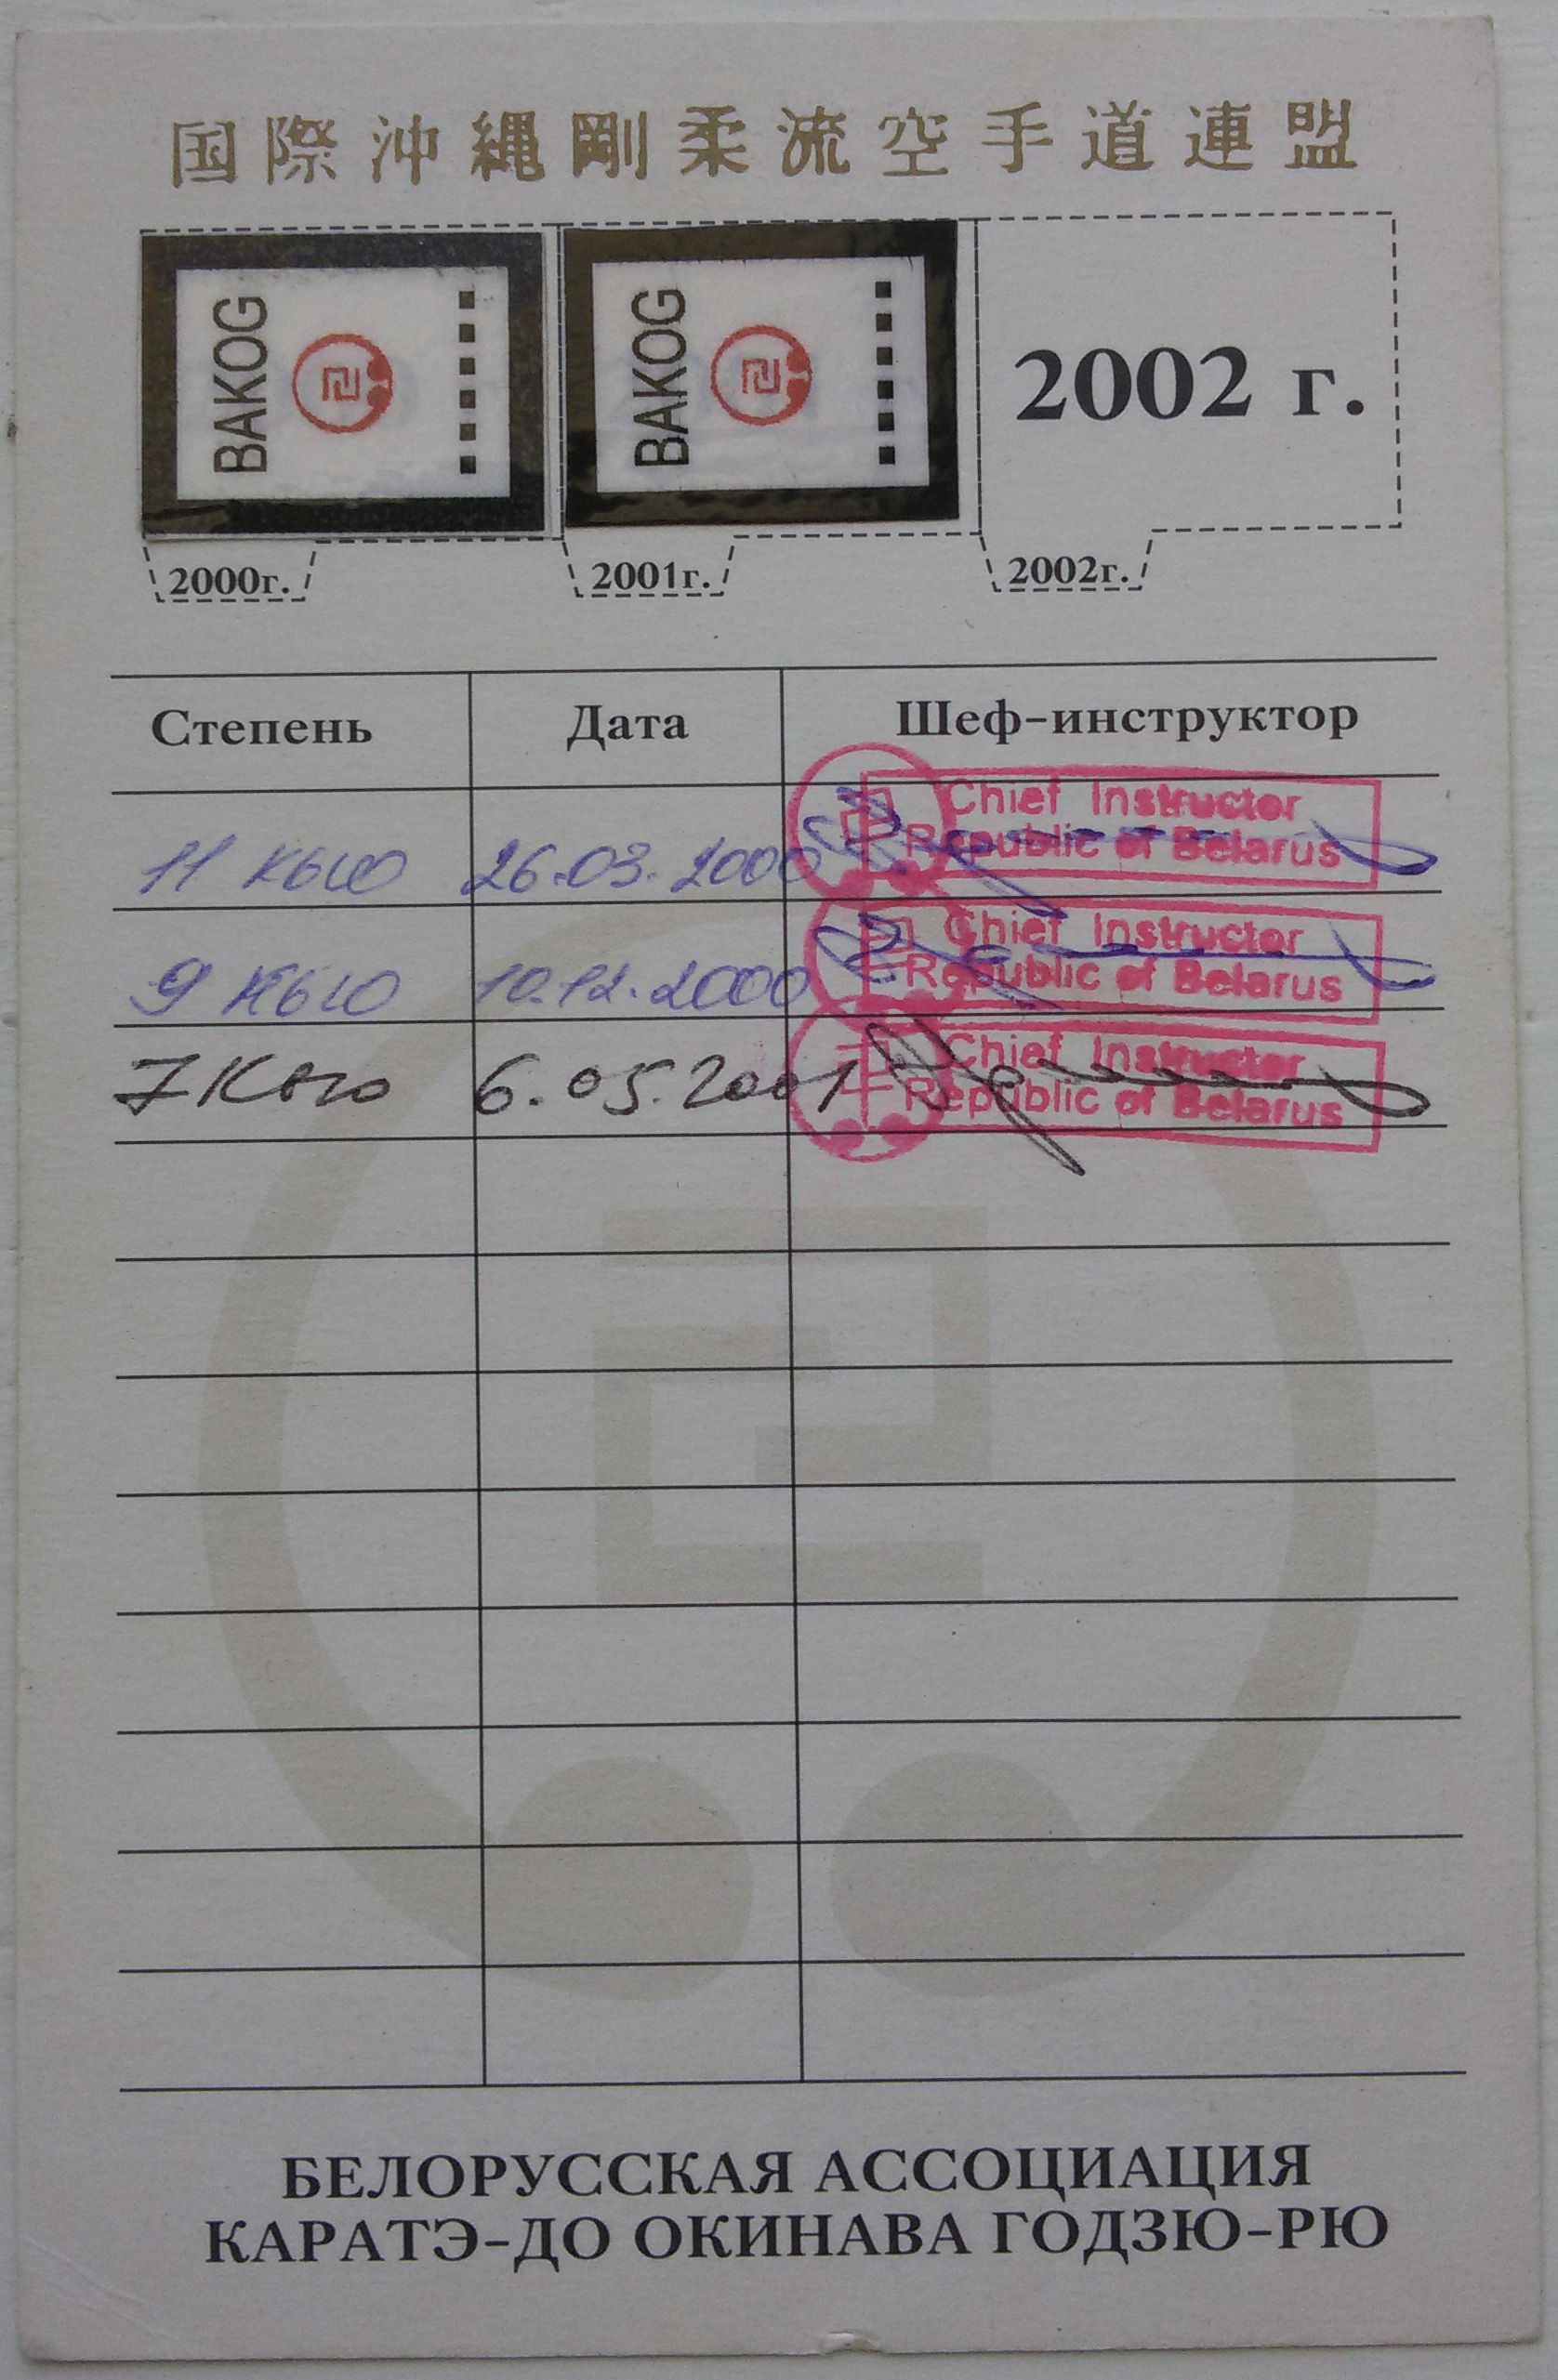 国際沖縄剛柔流空手道連盟
BAKOG BAKOG 2002 г.
2000г. 2001г. 2002г.
Степень Дата Шеф-инструктор
11 кью 26.03.2000 Chief Instructor
Republic of Belarus
9 кью 10.12.2000 Chief Instructor
Republic of Belarus
7 Кью 6.05.2001 Chief Instructor
Republic of Belarus
БЕЛОРУССКАЯ АССОЦИАЦИЯ
КАРАТЭ-ДО ОКИНАВА ГОДЗЮ-РЮ